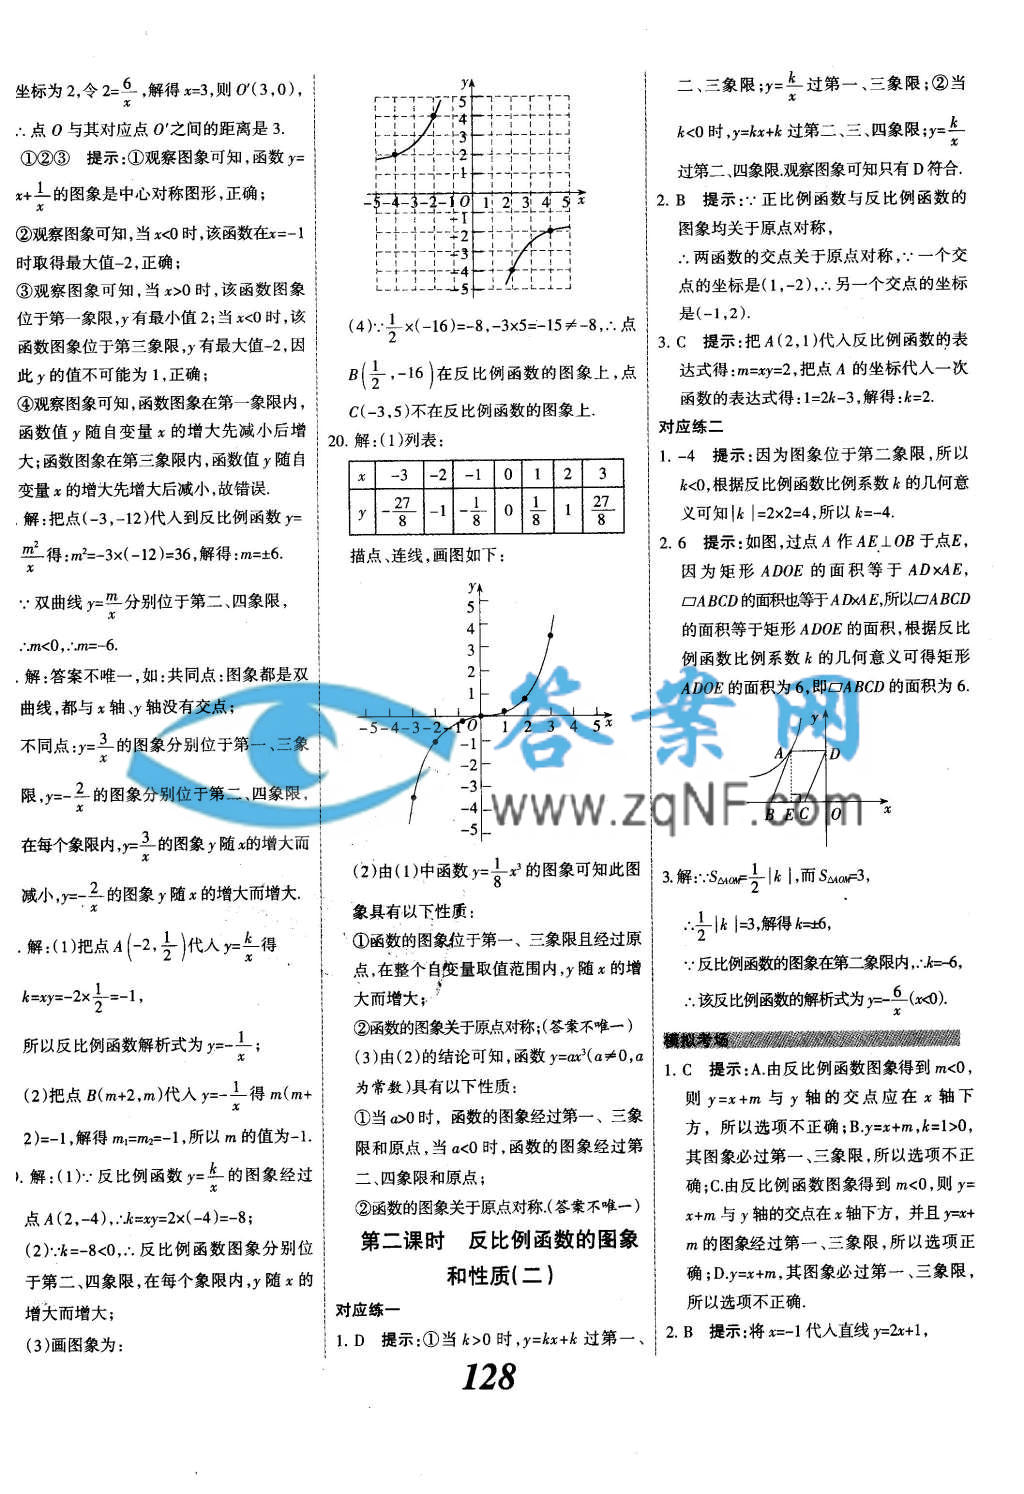 坐标为2,令2=6/x,解得x=3,则O′(3,0),
∴点O与其对应点O′之间的距离是3.
①②③ 提示:①观察图象可知,函数y=
x+1/x的图象是中心对称图形,正确;
②观察图象可知,当x<0时,该函数在x=-1
时取得最大值-2,正确;
③观察图象可知,当x>0时,该函数图象
位于第一象限,y有最小值2;当x<0时,该
函数图象位于第三象限,y有最大值-2,因
此y的值不可能为1,正确;
④观察图象可知,函数图象在第一象限内,
函数值y随自变量x的增大先减小后增
大;函数图象在第三象限内,函数值y随自
变量x的增大先增大后减小,故错误.
.解:把点(-3,-12)代人到反比例函数y=
m²/x得:m²=-3×(-12)=36,解得:m=±6.
∵双曲线y=m/x分别位于第二、四象限,
∴m<0,∴m=-6.
.解:答案不唯一,如:共同点:图象都是双
曲线,都与x轴、y轴没有交点;
不同点:y=3/x的图象分别位于第一、三象
限,y=-2/x的图象分别位于第二、四象限,
在每个象限内,y=3/x的图象y随x的增大而
减小,y=-2/x的图象y随x的增大而增大.
.解:(1)把点A(-2,1/2)代人y=k/x得
k=xy=-2×1/2=-1,
所以反比例函数解析式为y=-1/x;
(2)把点B(m+2,m)代人y=-1/x得m(m+
2)=-1,解得m₁=m₂=-1,所以m的值为-1.
).解:(1)∵反比例函数y=k/x的图象经过
点A(2,-4),∴k=xy=2×(-4)=-8;
(2)∵k=-8<0,∴反比例函数图象分别位
于第二、四象限,在每个象限内,y随x的
增大而增大;
(3)画图象为:
y
5
4
3
2
1
-5-4-3-2-1O 1 2 3 4 5 x
-1
-2
-3
-4
-5
(4)∵1/2×(-16)=-8,-3×5=-15≠-8,∴点
B(1/2,-16)在反比例函数的图象上,点
C(-3,5)不在反比例函数的图象上.
20.解:(1)列表:
x -3 -2 -1 0 1 2 3
y -27/8 -1 -1/8 0 1/8 1 27/8
描点、连线,画图如下:
y
5
4
3
2
1
-5-4-3-2-1O 1 2 3 4 5 x
-1
-2
-3
-4
-5
(2)由(1)中函数y=1/8x³的图象可知此图
象具有以下性质:
①函数的图象位于第一、三象限且经过原
点,在整个自变量取值范围内,y随x的增
大而增大;
②函数的图象关于原点对称;(答案不唯一)
(3)由(2)的结论可知,函数y=ax³(a≠0,a
为常数)具有以下性质:
①当a>0时,函数的图象经过第一、三象
限和原点,当a<0时,函数的图象经过第
二、四象限和原点;
②函数的图象关于原点对称.(答案不唯一)
第二课时 反比例函数的图象
和性质(二)
对应练一
1. D 提示:①当k>0时,y=kx+k过第一、
二、三象限;y=k/x过第一、三象限;②当
k<0时,y=kx+k过第二、三、四象限;y=k/x
过第二、四象限.观察图象可知只有D符合.
2. B 提示:∵正比例函数与反比例函数的
图象均关于原点对称,
∴两函数的交点关于原点对称,∵一个交
点的坐标是(1,-2),∴另一个交点的坐标
是(-1,2).
3. C 提示:把A(2,1)代人反比例函数的表
达式得:m=xy=2,把点A的坐标代人一次
函数的表达式得:1=2k-3,解得:k=2.
对应练二
1. -4 提示:因为图象位于第二象限,所以
k<0,根据反比例函数比例系数k的几何意
义可知|k|=2×2=4,所以k=-4.
2. 6 提示:如图,过点A作AE⊥OB于点E,
因为矩形ADOE的面积等于AD×AE,
▱ABCD的面积也等于AD×AE,所以▱ABCD
的面积等于矩形ADOE的面积,根据反比
例函数比例系数k的几何意义可得矩形
ADOE的面积为6,即▱ABCD的面积为6.
y
A D
B E C O x
3.解:∵S△AOM=1/2|k|,而S△AOM=3,
∴1/2|k|=3,解得k=±6,
∵反比例函数的图象在第二象限内,∴k=-6,
∴该反比例函数的解析式为y=-6/x(x<0).
模拟考场
1. C 提示:A.由反比例函数图象得到m<0,
则y=x+m与y轴的交点应在x轴下
方,所以选项不正确;B.y=x+m,k=1>0,
其图象必过第一、三象限,所以选项不正
确;C.由反比例函数图象得到m<0,则y=
x+m与y轴的交点在x轴下方,并且y=x+
m的图象经过第一、三象限,所以选项正
确;D.y=x+m,其图象必过第一、三象限,
所以选项不正确.
2. B 提示:将x=-1代人直线y=2x+1,
128
答案网
www.zqNF.com